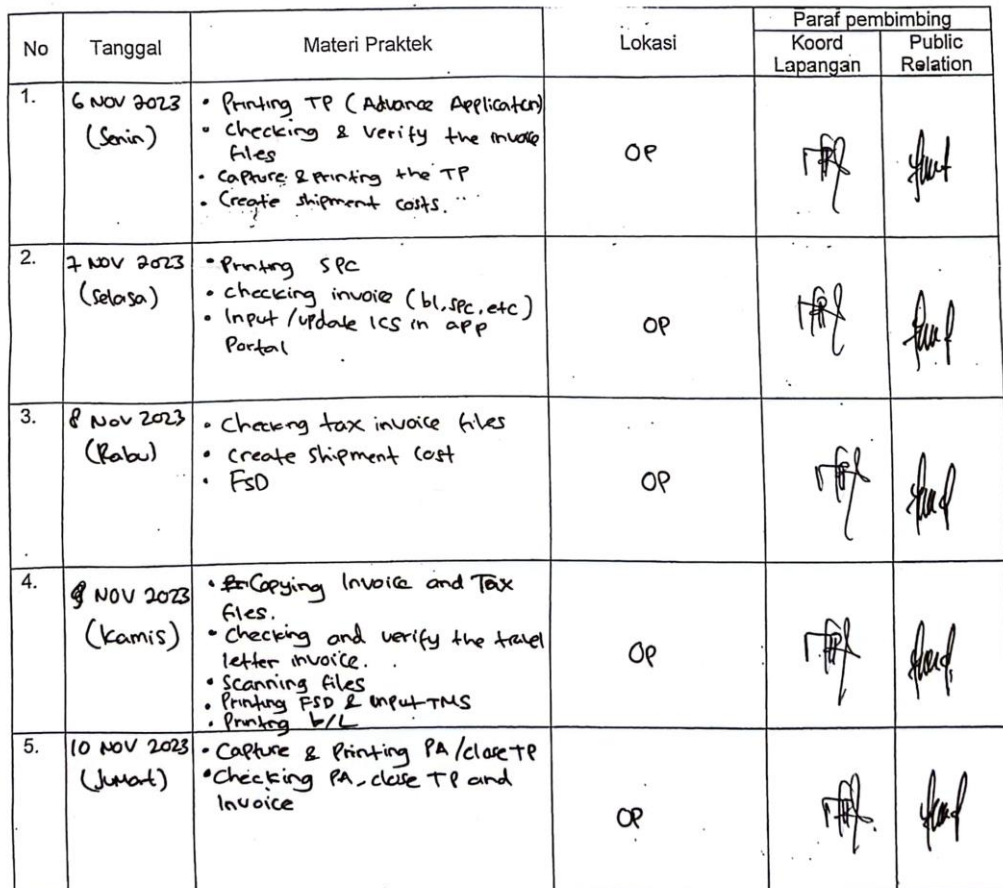 No Tanggal Materi Praktek Lokasi Paraf pembimbing
Koord Lapangan Public Relation
1. 6 NOV 2023 (Senin)
• Printing TP (Advance Application)
• Checking & Verify the invoice
files
• Capture & Printing the TP
• Create shipment costs.
OP
2. 7 NOV 2023 (Selasa)
• Printing SPC
• checking invoice (bl, spc, etc)
• Input /update ICS in app
Portal
OP
3. 8 NOV 2023 (Rabu)
• Checking tax invoice files
• create shipment cost
• FSD
OP
4. 9 NOV 2023 (Kamis)
• Copying Invoice and Tax
files.
• Checking and verify the travel
letter invoice.
• Scanning files
• Printing FSD & input TMS
• Printing b/L
OP
5. 10 NOV 2023 (Jumat)
• Capture & Printing PA/close TP
• Checking PA, close TP and
Invoice
OP